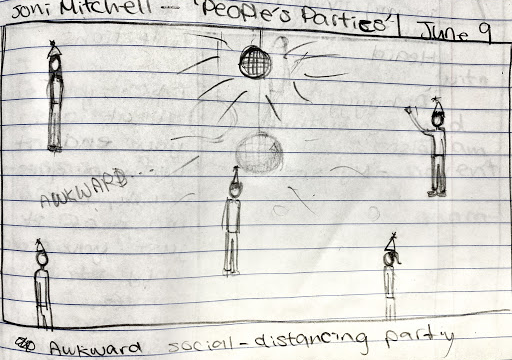 Joni Mitchell - 'People's Parties' | June 9
AWKWARD...
Awkward social-distancing party